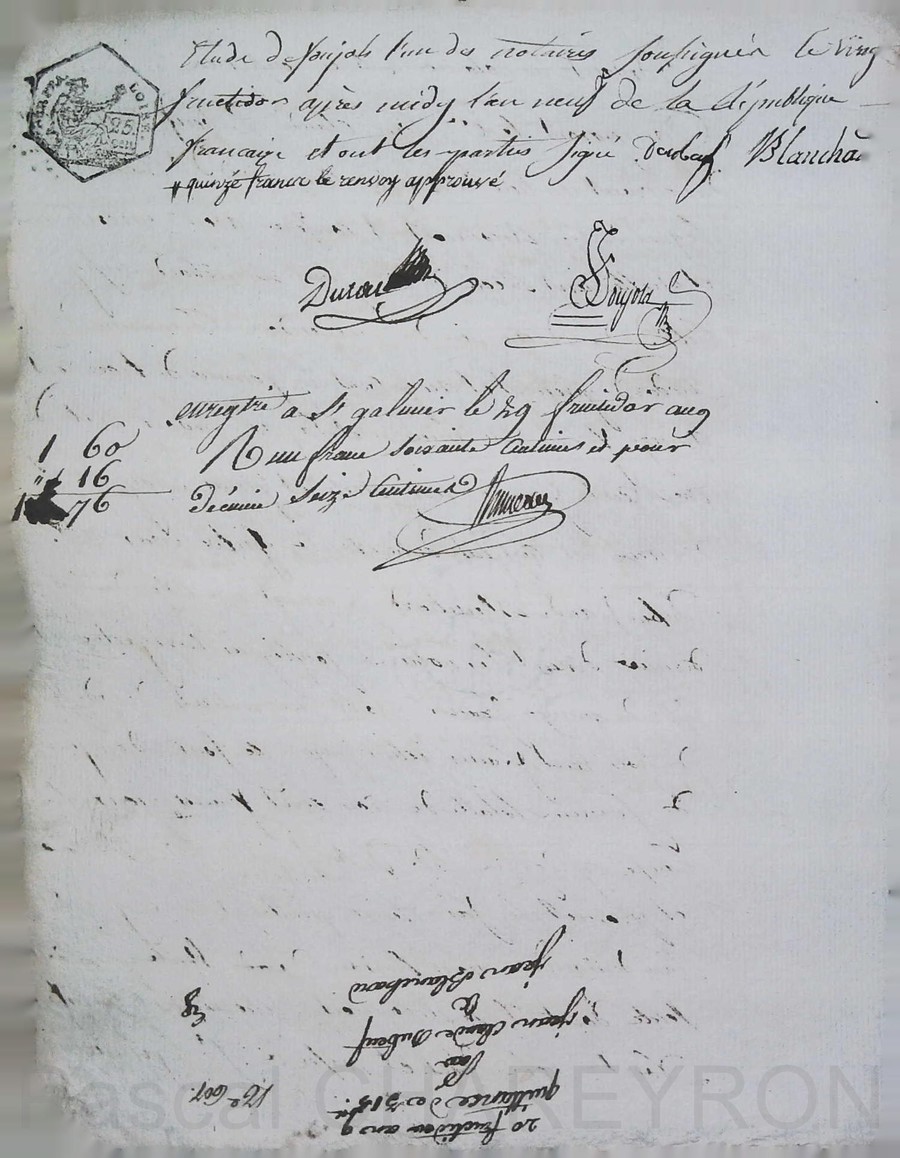 Etude de Poujols l'un des notaires soussignés le vingt
fructidor après midy l'an neuf de la république
francaise et ont les parties signé Duboeuf Blanchard
# quinze francs le renvoy approuvé
Poujols
enregtré a St galmier le 29 fructidor an 9
R un franc soixante Centimes et pour
décime Seize Centimes
1 60
" 16
1 76
25
LOIRE
20 fructidor an 9
quittance de 315 fr
par
jean Claude Duboeuf
a
jean Blanchard
Pascal CHAREYRON